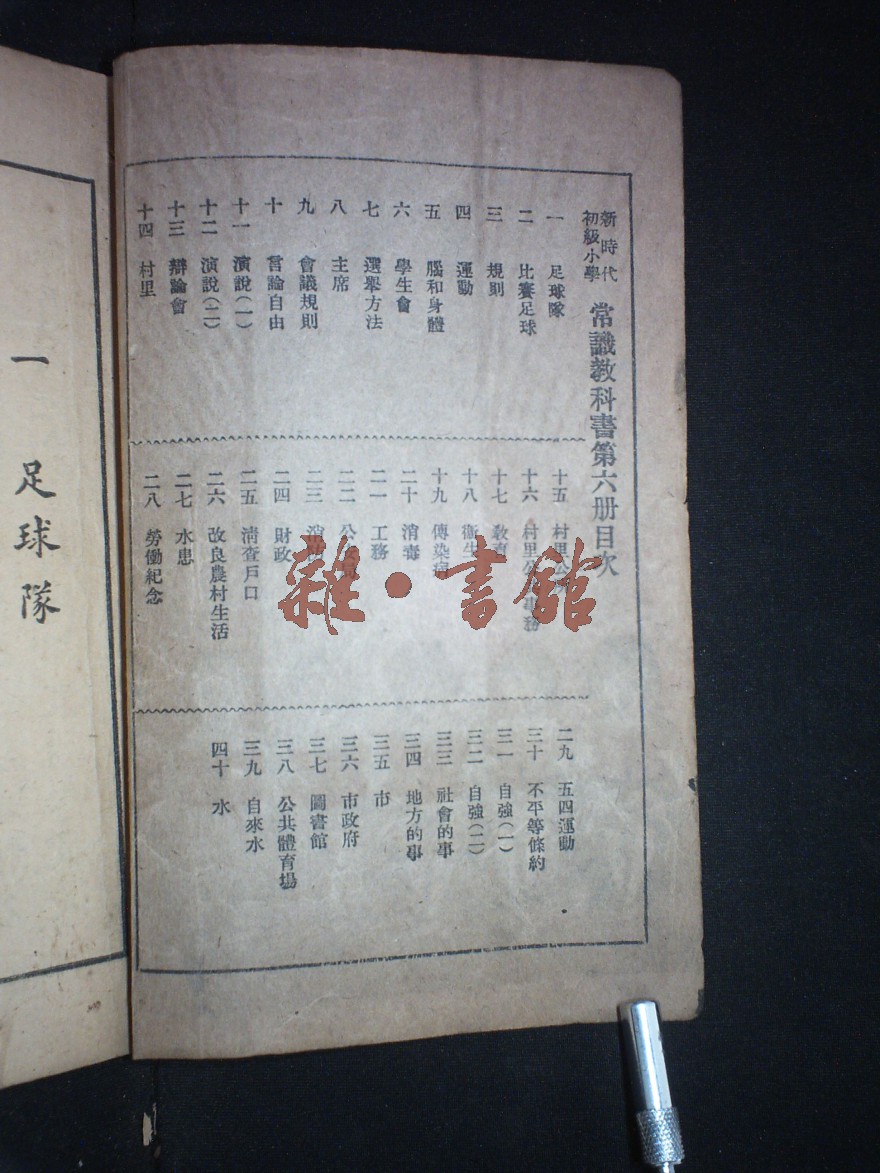 新時代
初級小學
常識教科書第六册目次
一 足球隊
二 比賽足球
三 規則
四 運動
五 腦和身體
六 學生會
七 選舉方法
八 主席
九 會議規則
十 言論自由
十一 演說(一)
十二 演說(二)
十三 辯論會
十四 村里
十五 村里公
十六 村里公 事務
十七 教育
十八 衞生
十九 傳染病
二十 消毒
二一 工務
二二 公
二三 消
二四 財政
二五 淸查戶口
二六 改良農村生活
二七 水患
二八 勞働紀念
二九 五四運動
三十 不平等條約
三一 自強(一)
三二 自強(二)
三三 社會的事
三四 地方的事
三五 市
三六 市政府
三七 圖書館
三八 公共體育場
三九 自來水
四十 水
一 足球隊
雜·書館